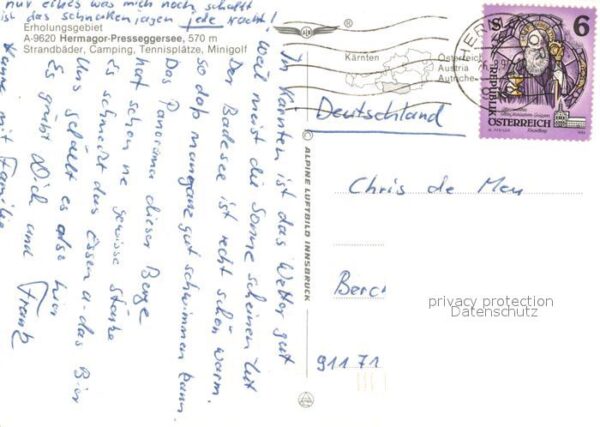 nur eines was mich noch schafft
ist das schnakenjagen jede Nacht!
Erholungsgebiet
A-9620 Hermagor-Presseggersee, 570 m
Strandbäder, Camping, Tennisplätze, Minigolf
In Kärnten ist das Wetter gut
weil meist die Sonne scheinen tut
Der Badesee ist recht schön warm.
so daß man ganz gut schwimmen kann.
Das Panorama dieser Berge
hat schon ne gewisse Stärke
Es schmeckt das Essen u. das Bier
Uns gefällt es also hier
Es grüßt Dich und
Frank
mit Familie
®
Kärnten
Österreich
Austria
Autriche
Deutschland
© ALPINE LUFTBILD INNSBRUCK
Chris de Men
Berc
91171
6
S
REPUBLIK
ÖSTERREICH
privacy protection
Datenschutz